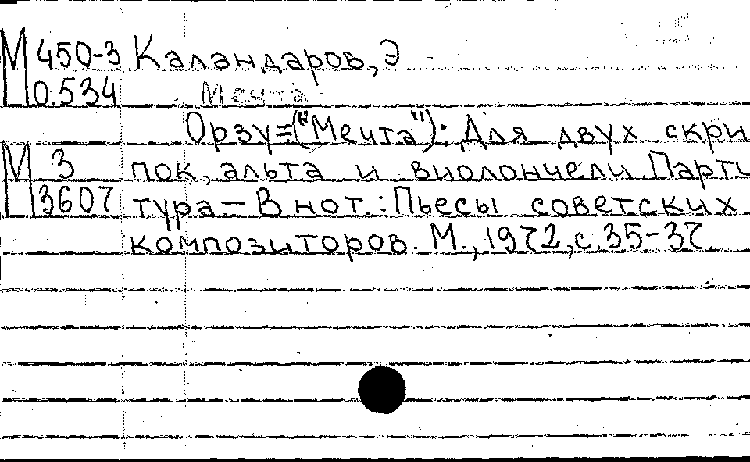 М 450-3 Каландаров, Э
0.534 Мечта
Орзу=("Мечта"): Для двух скри
М 3 пок, альта и виолончели Парти
3607 тура — В нот.: Пьесы советских
композиторов. М., 1972, с. 35-37.